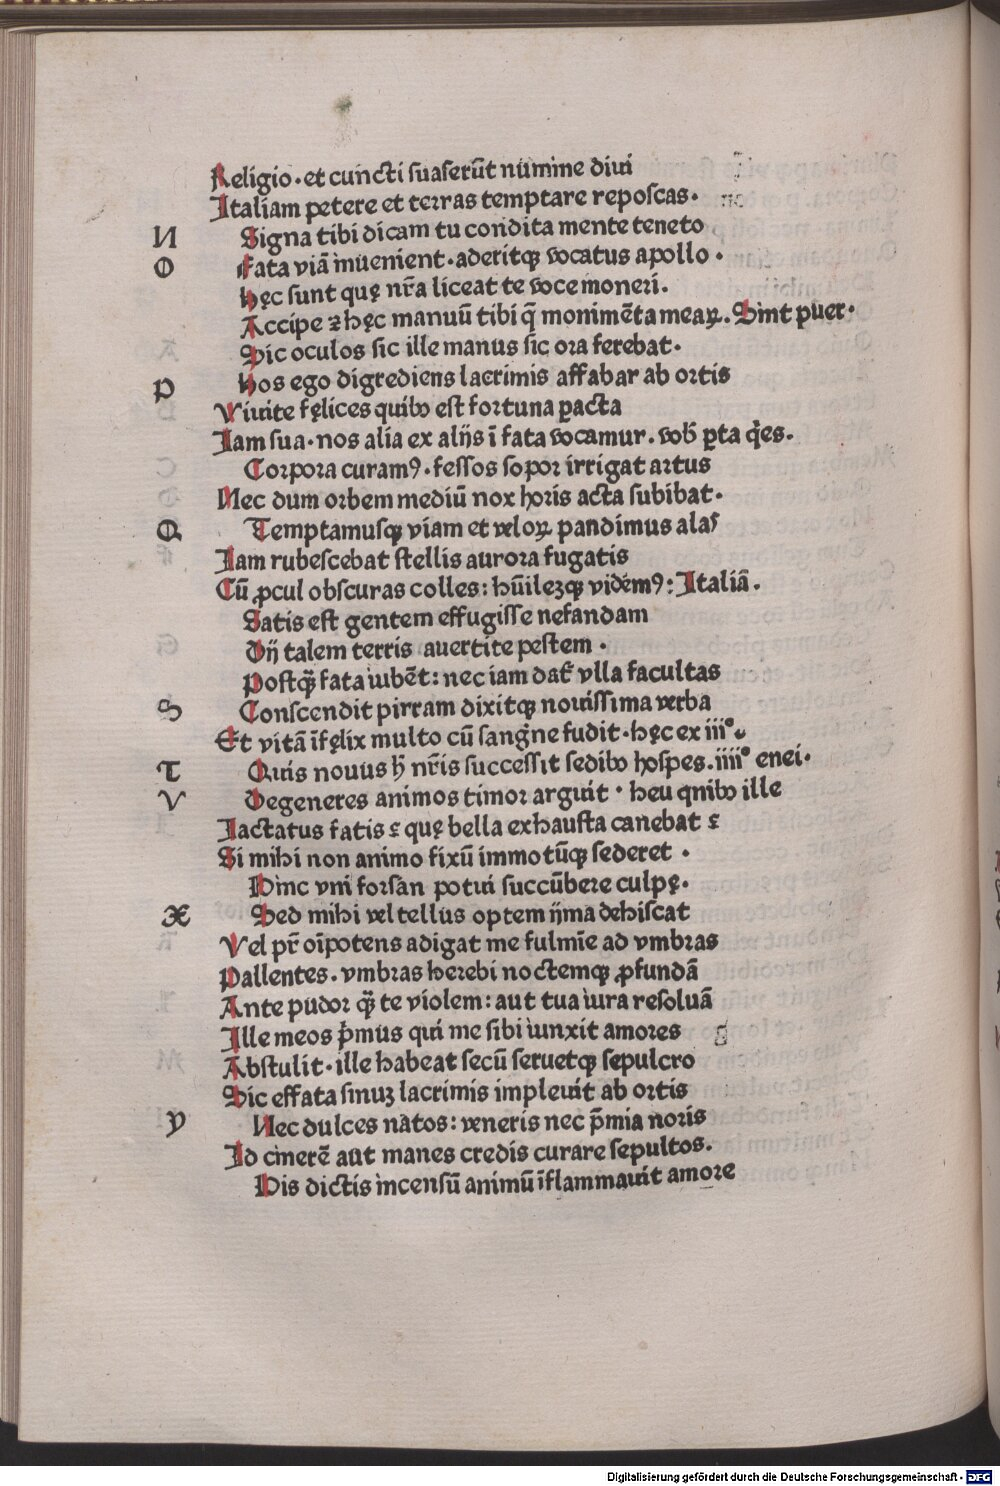 Religio·et cuncti suaserūt numine diui
Italiam petere et terras temptare reposcas·
N Signa tibi dicam tu condita mente teneto
O Fata viā inuenient·aderitqꝫ vocatus apollo·
Hęc sunt quę nr̄a liceat te voce moneri.
Accipe ⁊ hęc manuū tibi q̄ monimēta meaꝝ. Sint puer·
Sic oculos sic ille manus sic ora ferebat·
P Hos ego digrediens lacrimis affabar ab ortis
Viuite fęlices quibꝰ est fortuna ꝑacta
Iam sua·nos alia ex alijs ī fata vocamur. vob̄ ꝑta q̇es.
Corpora curamꝰ·fessos sopor irrigat artus
Nec dum orbem mediū nox horis acta subibat·
Q Temptamusqꝫ viam et veloꝝ pandimus alas
Iam rubescebat stellis aurora fugatis
Cū ꝓcul obscuras colles: hūilezqꝫ videmꝰ: Italiā.
Satis est gentem effugisse nefandam
Dij talem terris auertite pestem·
Postq̄ fata iubēt: nec iam dat᷑ vlla facultas
S Conscendit pirram dixitqꝫ nouissima verba
Et vitā īfęlix multo cū sangine fudit·hęc ex iiiº
T Quis nouus h̄ nr̄is successit sedibꝰ hospes.iiiiº enei·
V Degeneres animos timor arguit·heu qnibꝰ ille
Iactatus fatis ⁊ quę bella exhausta canebat ⁊
Si mihi non animo fixū immotūqꝫ sederet·
Hinc vni forsan potui succūbere culpę·
X Sed mihi vel tellus optem ijma dehiscat
Vel pr̄ oīpotens adigat me fulmīe ad vmbras
Pallentes·vmbras herebi noctemqꝫ ꝓfundā
Ante pudor q̄ te violem: aut tua iura resoluā
Ille meos p̄mus qui me sibi iunxit amores
Abstulit·ille habeat secū seruetqꝫ sepulcro
Sic effata sinuꝫ lacrimis impleuit ab ortis
Y Nec dulces natos: veneris nec p̄mia noris
Id cinerē aut manes credis curare sepultos.
His dictis incensū animū īflammauit amore
Digitalisierung gefördert durch die Deutsche Forschungsgemeinschaft · DFG